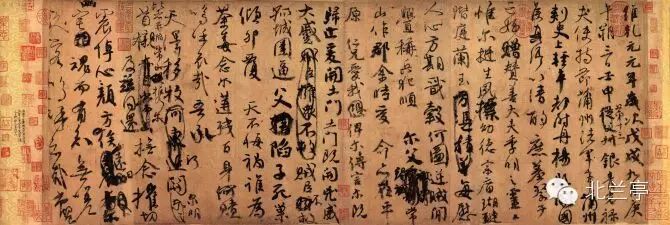 維乾元元年歲次戊戌九月庚
午朔三日壬申第十三叔銀青光祿
夫使持節蒲州諸軍事蒲州
刺史上輕車都尉丹楊縣開國
侯真卿以清酌庶羞祭于
亡姪贈贊善大夫季明之靈曰
惟爾挺生夙標幼德宗廟瑚璉
階庭蘭玉每慰
人心方期戩穀何圖逆賊間
釁稱兵犯順爾父竭誠常
山作郡余時受命亦在平
原仁兄愛我俾爾傳言爾既
歸止爰開土門土門既開凶威
大蹙賊臣不救
孤城圍逼父陷子死巢
傾卵覆天不悔禍誰為
荼毒念爾遘殘百身何贖
嗚呼哀哉吾承
天澤移牧河關泉明
比者再陷常山攜爾
首櫬及茲同還撫念摧切
震悼心顏方俟遠日
卜爾幽宅魂而有知無嗟
久客嗚呼哀哉尚饗
北兰亭